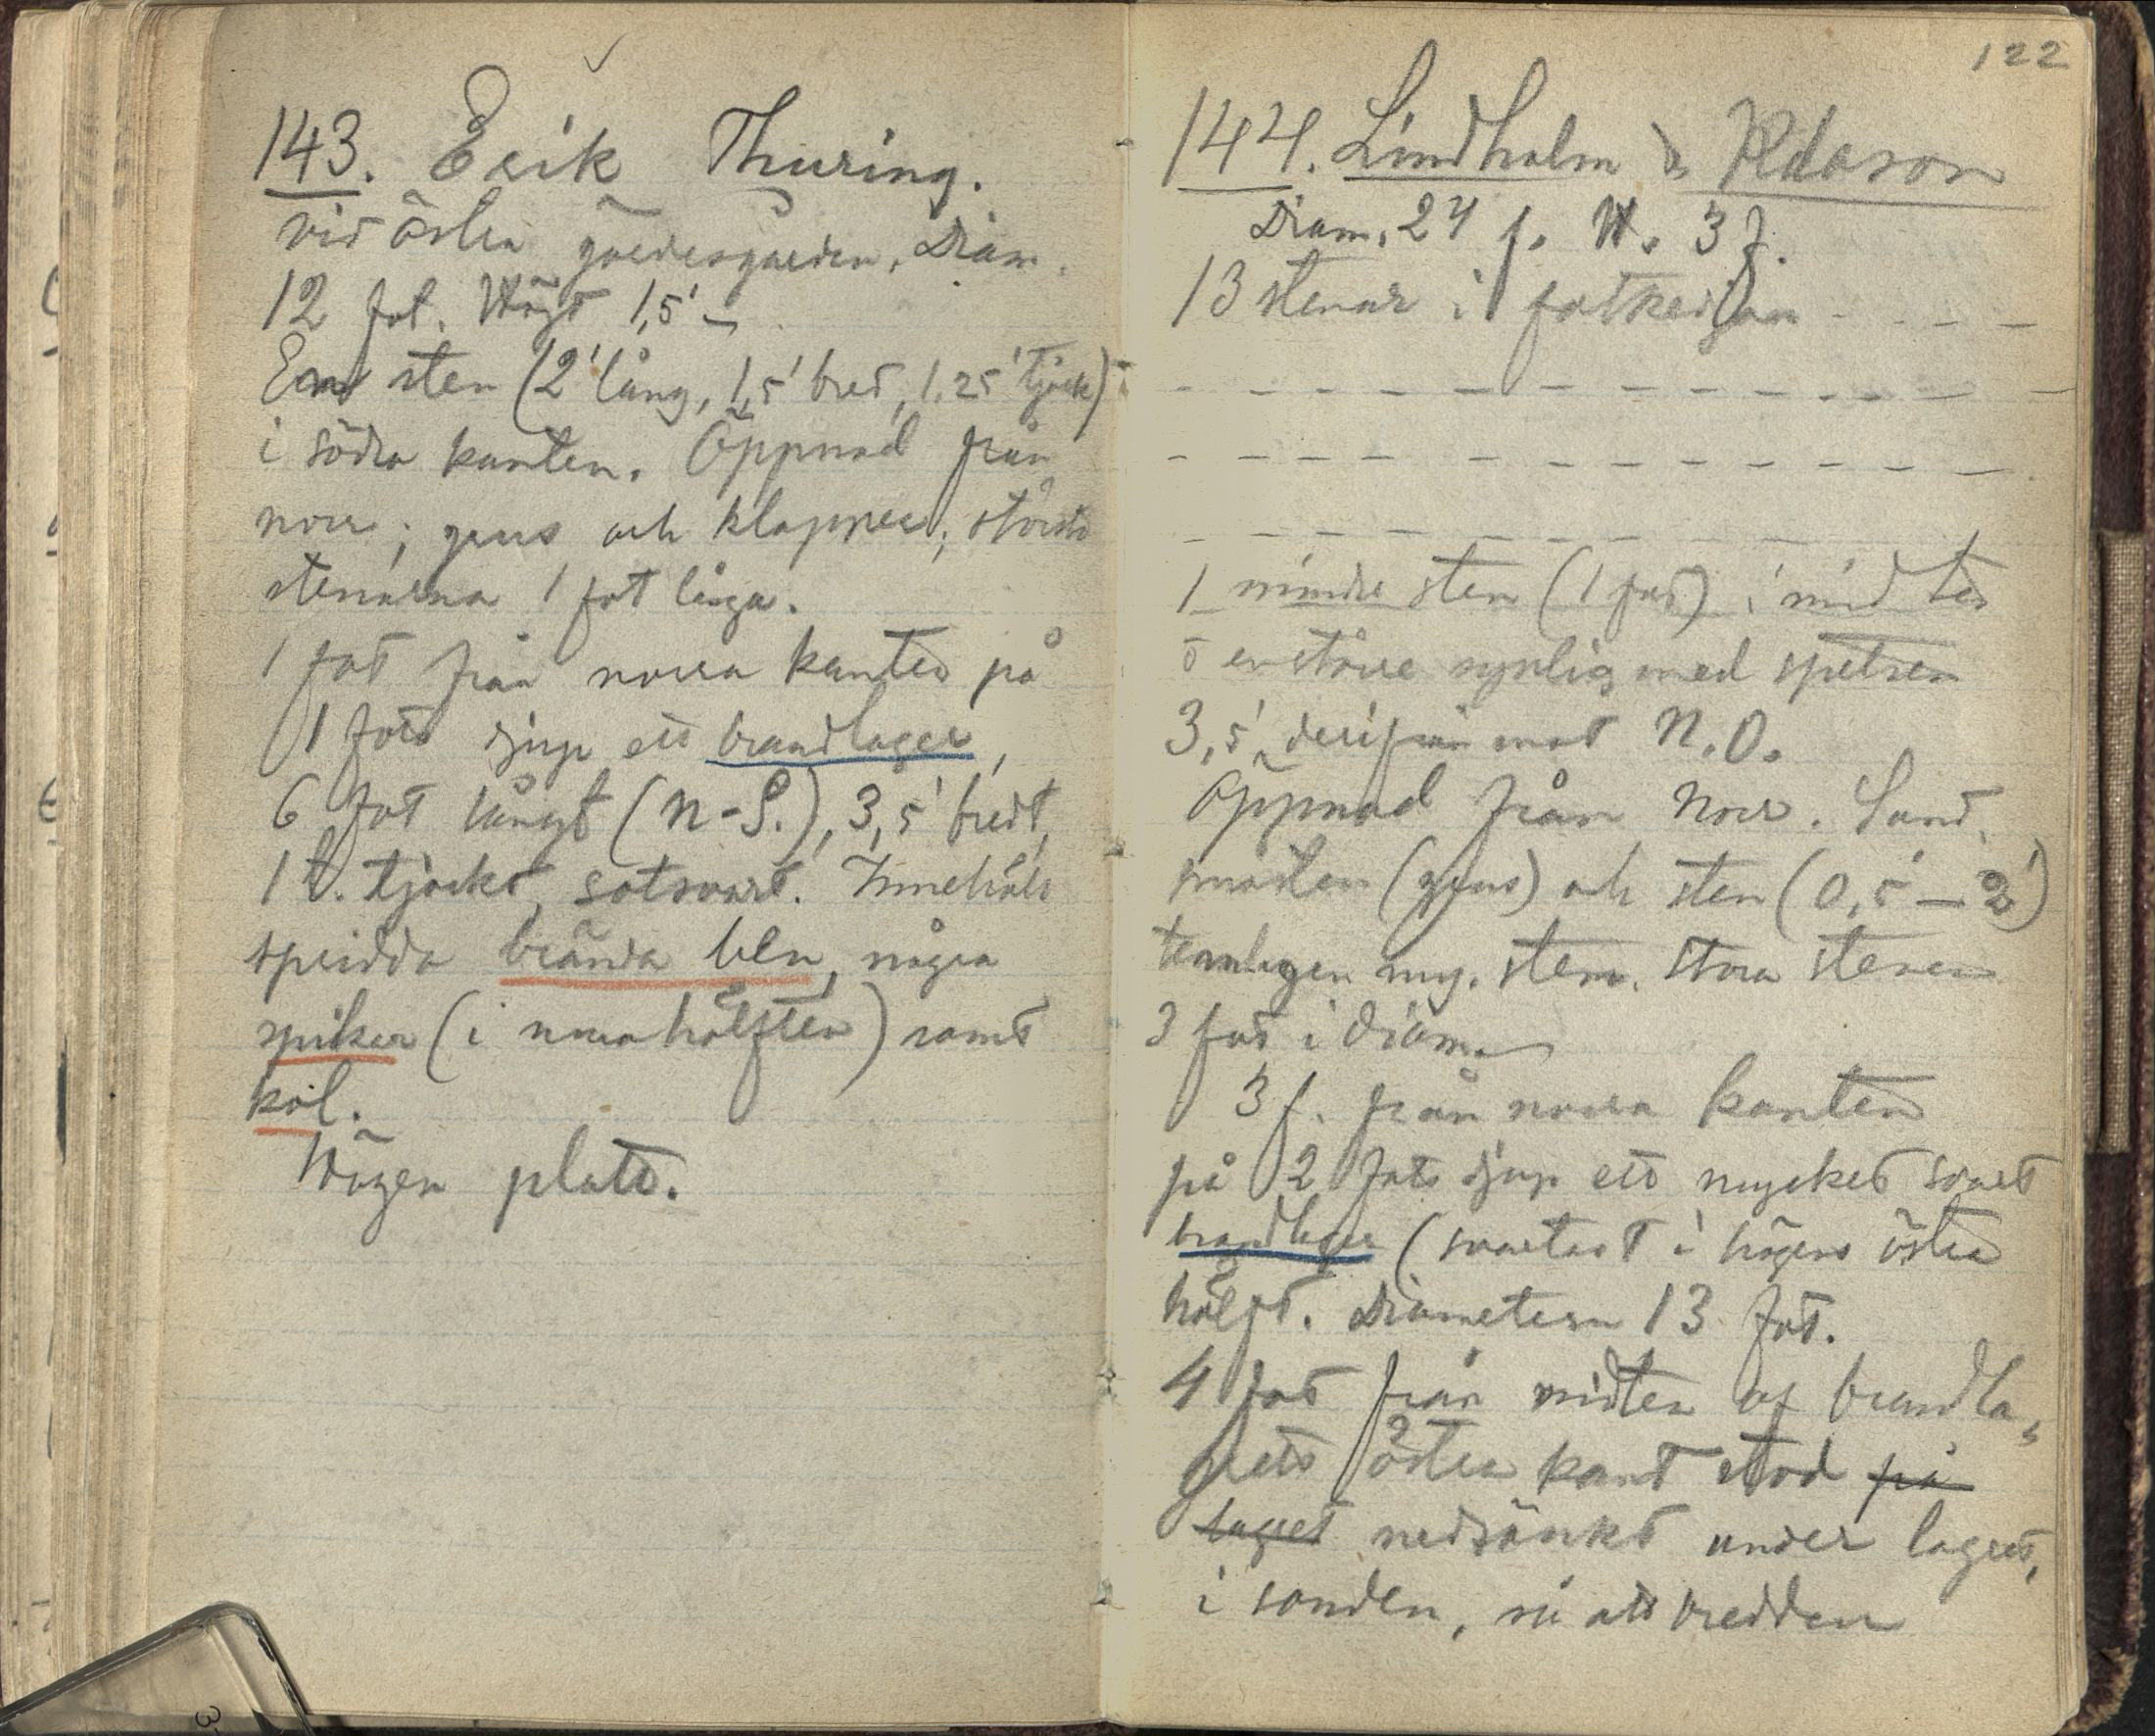 143. Erik Thuring.
vid östra gärdesgården. Diam.
12 fot. Högd 1,5'
En sten (2' lång, 1,5' bred, 1.25' tjock)
i södra kanten. Öppnad från
norr; grus och klapper; största
stenarna 1 fot låga.
1 fot från norra kanten på
1 fots djup ett brandlager,
6 fot långt (N-S.), 3,5' bredt,
1 t. tjockt, sotsvart. Innehöll
spridda brända ben, några
spikar (i norra hälften) samt
kol.
Högen platt.
122
144. Lindholm &
Diam. 24 f. H. 3 f.
13 stenar i fotkedjan - - - -
- - - - - - - - - - - -
- - - - - - - - - - - -
- - - - - - - - - -
1 mindre sten (1 fot) i midten
o en större synlig med spetsen
3,5' derifrån mot N.O.
Öppnad från Norr. Sand,
(grus) och sten (0,5' — 2')
temligen my. sten. Stora stenen
3 fot i diam.
3 f. från norra kanten
på 2 fots djup ett mycket svart
brandlager (svartast i högens östra
hälft. Diametern 13 fot.
4 fot från midten af brandla-
grets östra kant stod på
lagret nedsänkt under lagret,
i sanden, så att bredden